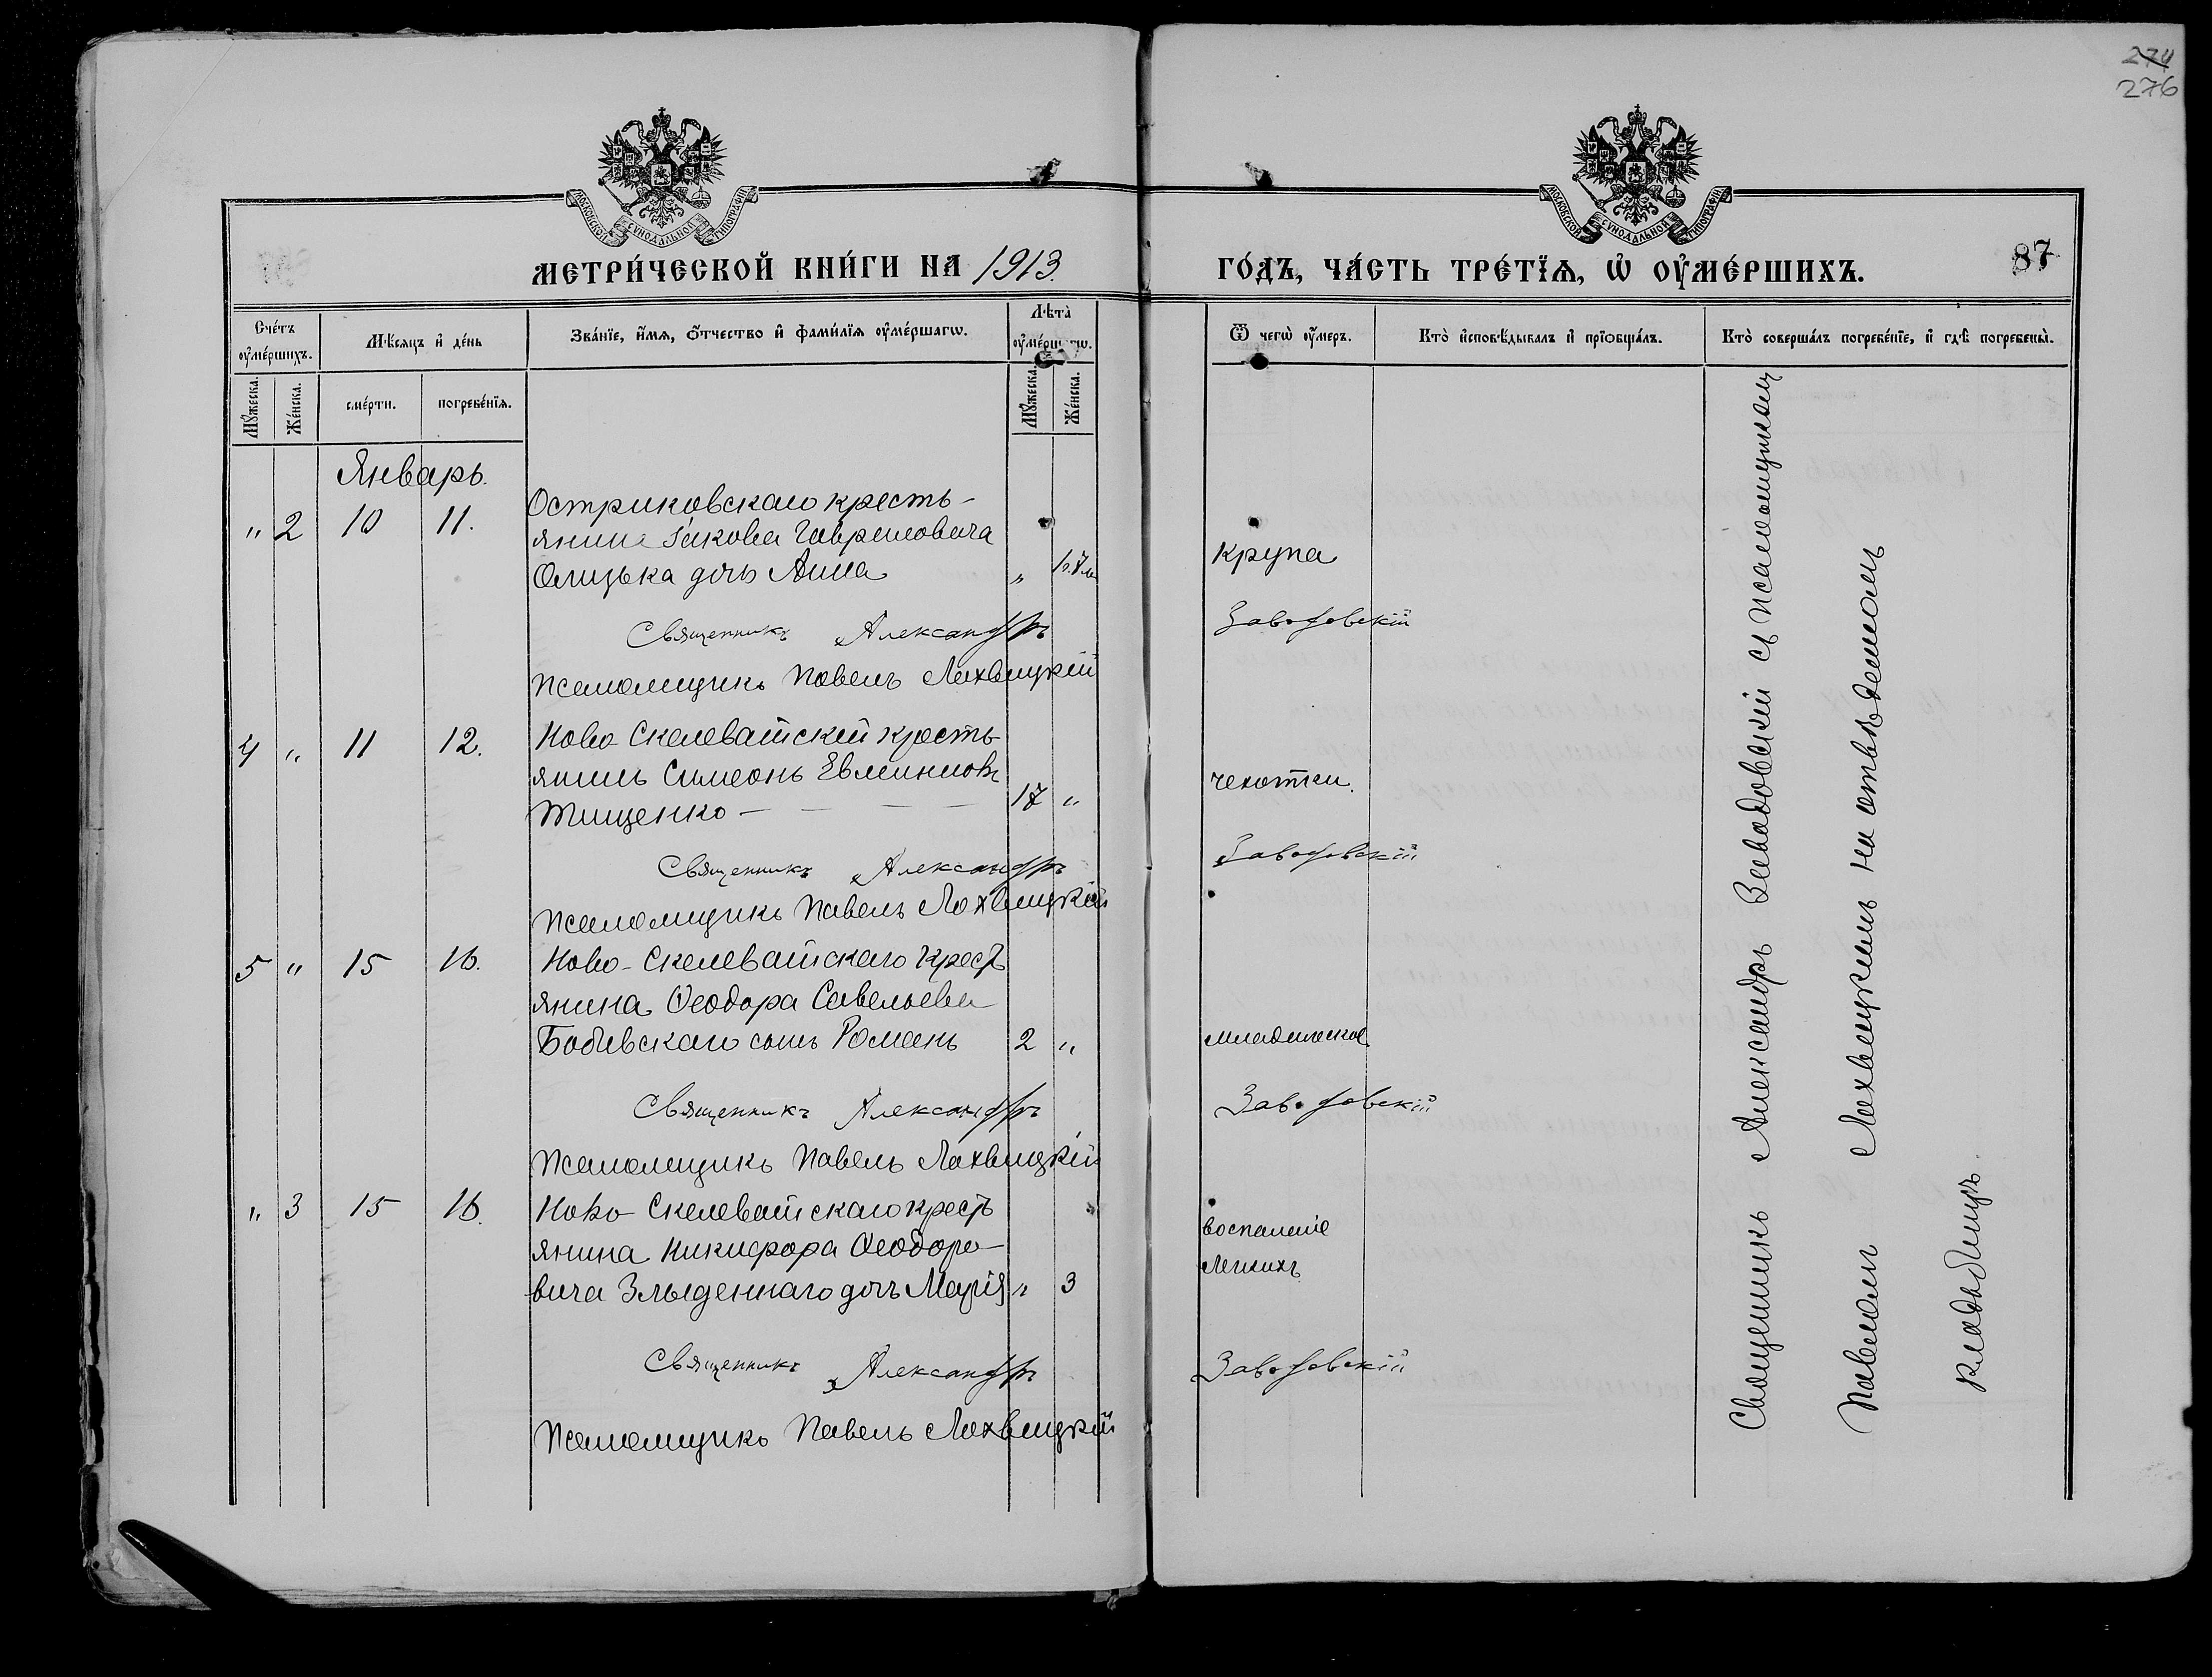 274
276
МОСКОВСКОЙ СУНОДАЛЬНОЙ ТИПОГРАФІИ
МОСКОВСКОЙ СУНОДАЛЬНОЙ ТИПОГРАФІИ
МЕТРИ́ЧЕСКОЙ КНИ́ГИ НА 1913.
ГО́ДЪ, ЧА́СТЬ ТРЕ́ТЇѦ, Ѡ҆ ОУ҆МЕ́РШИХЪ.
87
Сче́тъ оу҆ме́ршихъ.
Мѣ́сяцъ и҆ де́нь
Зва́нїе, и҆́мѧ, ѻ҆́тчество и҆ фами́лїѧ оу҆ме́ршагѡ.
Лѣ́та оу҆ме́ршагѡ.
Ѿ чегѡ̀ оу҆́меръ.
Кто̀ и҆сповѣ́дывалъ и҆ прїѻбща́лъ.
Кто̀ соверша́лъ погребе́нїе, и҆ гдѣ̀ погребены̀.
Мꙋ́жеска.
Же́нска.
сме́рти.
погребе́нїѧ.
Мꙋ́жеска.
Же́нска.
Январь.
" 2 10 11. Остриковскаго кресть-
янина Іакова Гавриловича
Олизька дочь Анна " крупа
Священникъ Александръ Заводовскій
Псаломщикъ Павелъ Лохвицкій
4 " 11 12. Ново Скелеватскій кресть
янинъ Симеонъ
Тищенко — — — — 17 " чехотки.
Священникъ Александръ Заводовскій
Псаломщикъ Павелъ Лохвицкій
5 " 15 16. Ново-Скелеватскаго крест
янина Ѳеодора Савельева
сынъ Романъ 2 " младенческой
Священникъ Александръ Заводовскій
Псаломщикъ Павелъ Лохвицкій
" 3 15 16. Ново Скелеватскаго крест
янина Никифора Ѳеодоро-
вича Злыденнаго дочь Марія " 3 воспаленіе
легкихъ
Священникъ Александръ Заводовскій
Псаломщикъ Павелъ Лохвицкій
Священникъ Александръ Заводовскій съ псаломщикомъ
Павломъ Лохвицкимъ на отведенномъ
кладбищѣ.